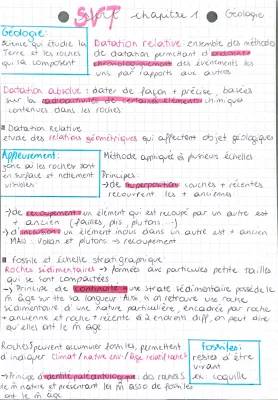 SVT chapitre 1 Géologie
Géologie:
science qui étudie la
Terre et les roches
qui la composent
Datation relative: ensemble des méthodes
de datation permettant d'ordonner
chronologiquement des événements les
uns par rapports aux autres
Datation absolue: dater de façon + précise, basées
sur la radioactivité de certains éléments chimiques
contenues dans les roches.
Datation Relative
étude des relations géométriques qui affectent objet géologiques
Affleurement:
zone où les roches sont
en surface et nettement
visibles
Méthode appliquée à plusieurs échelles
Principes:
→ de superposition couches + récentes
recouvrent les + anciennes
→ de recoupement un élément qui est recoupé par un autre est
+ ancien (failles, plis, pluton...)
→ d'inclusion un élément inclus dans un autre est + ancien
MAIS: Volcan et plutons → recoupement
Fossile et échelle stratigraphique
Roches sédimentaires → formées aux particules petite tailles
qui se sont compactées
→ Principe de continuité = une strate sédimentaire possède le
m âge sur tte sa longueur. Ainsi si on retrouve une roche
sédimentaire d'une nature particulière, encadrée par roche
+ ancienne et roche + récente à 2 endroits diff, on peut dire
qu'elles ont le m âge
Roches peuvent accumuler fossiles, permettent
d'indiquer climat / native env / âge relatif roche
Fossiles:
restes d'être
vivant
ex: coquille
→ Principe d'identité paléontologique = des roches
de m nature et présentant les m asso de fossiles
ont le m âge